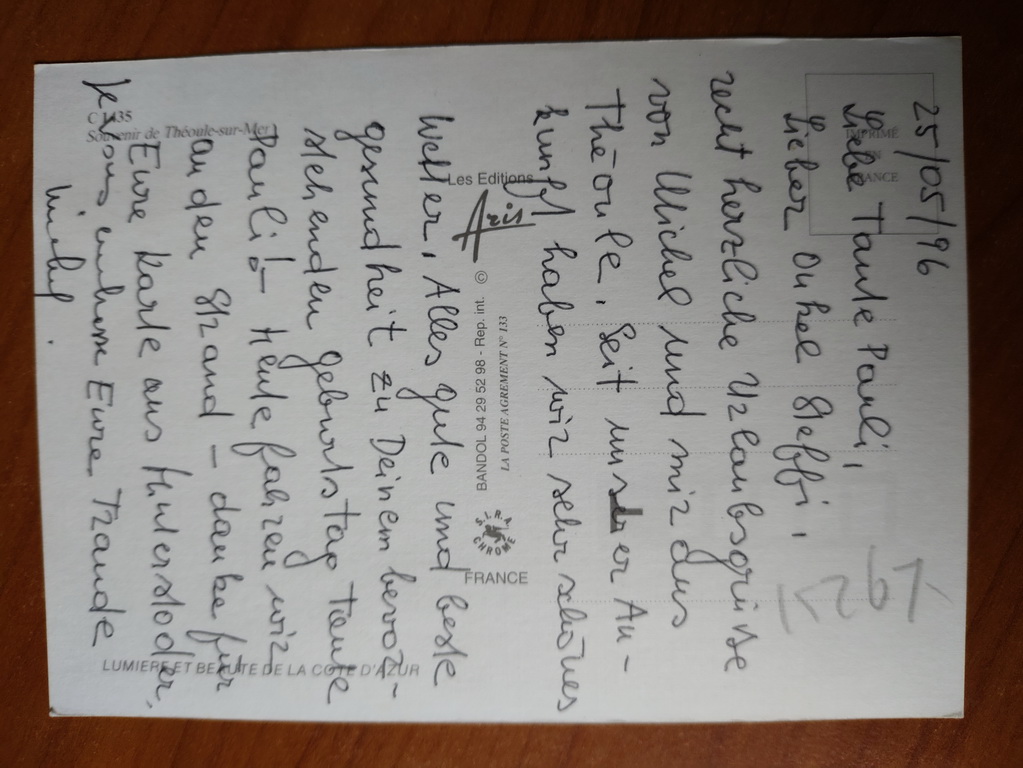 25/05/96
Liebe Tante Pauli,
Lieber Onkel Steffi,
recht herzliche Urlaubsgrüsse
von Michel und mir aus
Théoule. Seit unserer An-
kunft haben wir sehr schönes
Wetter, Alles gute und beste
gesundheit zu Deinem bevor-
stehenden geburtstag Tante
Pauli! – Heute fahren wir
an den Strand – danke für
Eure Karte aus Hinterstoder.
Eure Traude
Michel.
C 1135
Souvenir de Théoule-sur-Mer
LUMIERE ET BEAUTE DE LA COTE D'AZUR
Les Editions
Aris
BANDOL 94 29 52 98 - Rep. int. ©
LA POSTE AGREMENT N° 133
S.I.R.A.
CHROME
FRANCE
IMPRIMÉ
EN
FRANCE